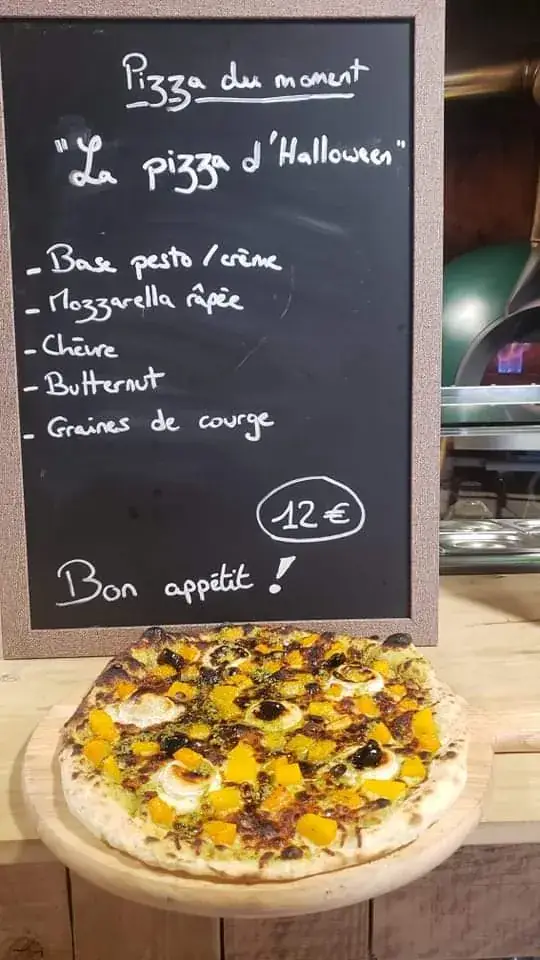 Pizza du moment
"La pizza d'Halloween"
- Base pesto / crème
- Mozzarella râpée
- Chèvre
- Butternut
- Graines de courge
12 €
Bon appétit !